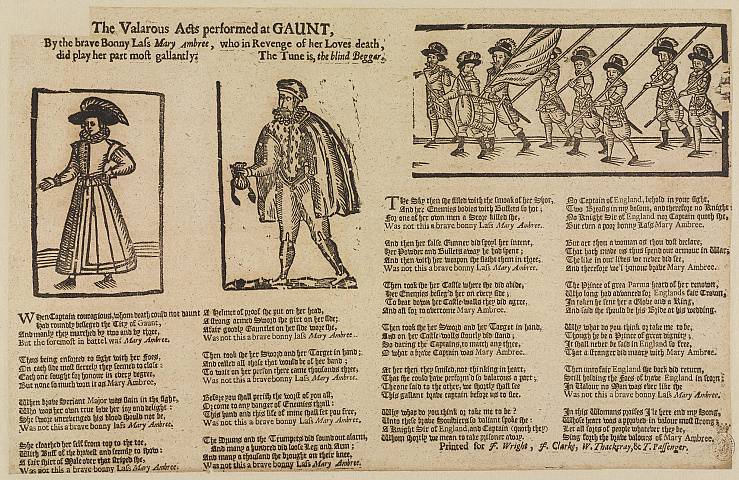 The Valarous Acts performed at GAUNT,
By the brave Bonny Lass Mary Ambree, who in Revenge of her Loves death,
did play her part most gallantly: The Tune is, the blind Beggar.
WHen Captain couragious, whom death could not daunt
Had roundly besieged the City of Gaunt,
And manly they marched by two and by three,
But the foremost in battel was Mary Ambree.
Thus being enforced to fight with her Foes,
On each side most fiercely they seemed to close:
Each one sought for honour in every degree,
But none so much won it as Mary Ambree.
When brave Serjeant Major was slain in the fight,
Who was her own true love her joy and delight:
She swore unrevenged his blood should not be,
Was not this a brave bonny Lass Mary Ambree.
She cloathed her self from top to the toe,
With Buff of the bravest and seemly to show:
A fair shirt of Male over that striped she,
Was not this a brave bonny Lass Mary Ambree.
A Helmet of proof she put on her head,
A strong armed Sword she girt on her side;
A fair goodly Gauntlet on her side wore she,
Was not this a brave bonny lass Mary Ambree.
Then took she her Sword and her Target in hand;
And called all those that would be of her band;
To wait on her person there came thousands three,
Was not this a brave bonny lass Mary Ambree.
Before you shall perish the worst of you all,
Or come to any danger of Enemies thrall:
This hand and this life of mine shall set you free,
Was not this a brave bonny Lass Mary Ambree.
The Drums and the Trumpets did sound out alarm,
And many a hundred did loose Leg and Arm:
And many a thousand she brought on their knee,
Was not this a brave bonny Lass Mary Ambree.
The Sky then she filled with the smoak of her Shot,
And her Enemies bodies with Bullets so hot;
For one of her own men a Score killed she,
Was not this a brave bonny Lass Mary Ambree.
And then her false Gunner did spoyl her intent,
Her Powder and Bullets away he had spent;
And then with her weapon she slasht them in three,
Was not this a brave bonny Lass Mary Ambree.
Then took she the Castle where she did abide,
Her Enemies besieg'd her on every side;
To beat down her Castle-walls they did agree,
And all for to overcome Mary Ambree.
Then took she her Sword and her Target in hand,
And on her Castle-walls stoutly did stand;
So daring the Captains, to match any three,
O what a brave Captain was Mary Ambree.
At her then they smiled, not thinking in heart,
That she could have perform'd so valarous a part;
The one said to the other, we shortly shall see
This gallant brave captain before us to flee.
Why what do you think or take me to be?
Unto these brave Souldiers so valiant spoke she:
A Knight Sir of England, and Captain (quoth they)
Whom shortly we mean to take prisoner away.
No Captain of England, behold in your sight,
Two Breasts in my bosom, and therefore no Knight:
No Knight Sir of England nor Captain quoth she,
But even a poor bonny Lass Mary Ambree.
But art thou a woman as thou dost declare,
That hath made us thus spend our armour in War;
The like in our lives we never did see,
And therefore we'l honour brave Mary Ambree.
The Prince of great Parma heard of her renown,
Who long had advanced for Englands fair Crown,
In token he sent her a Glove and a Ring,
And said she should be his Bride at his wedding.
Why what do you think or take me to be,
Though he be a Prince of great dignity;
It shall never be said in England so free,
That a stranger did marry with Mary Ambree.
Then unto fair England she back did return,
Still holding the Foes of brave England in scorn;
In Valour no Man was ever like she
Was not this a brave bonny Lass Mary Ambree.
In this Womans praises I'le here end my Song,
Whose heart was approved in valour most strong;
Let all sorts of people whatever they be,
Sing forth the brave valours of Mary Ambree.
Printed for F. Wright, J. Clarke, W. Thackeray, & T. Passenger.